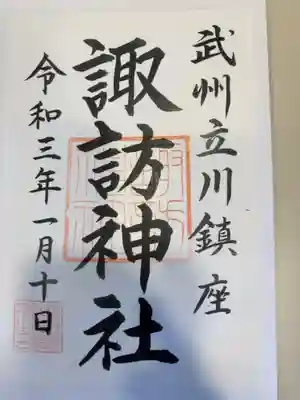 武州立川鎮座
諏訪神社
令和三年一月十日